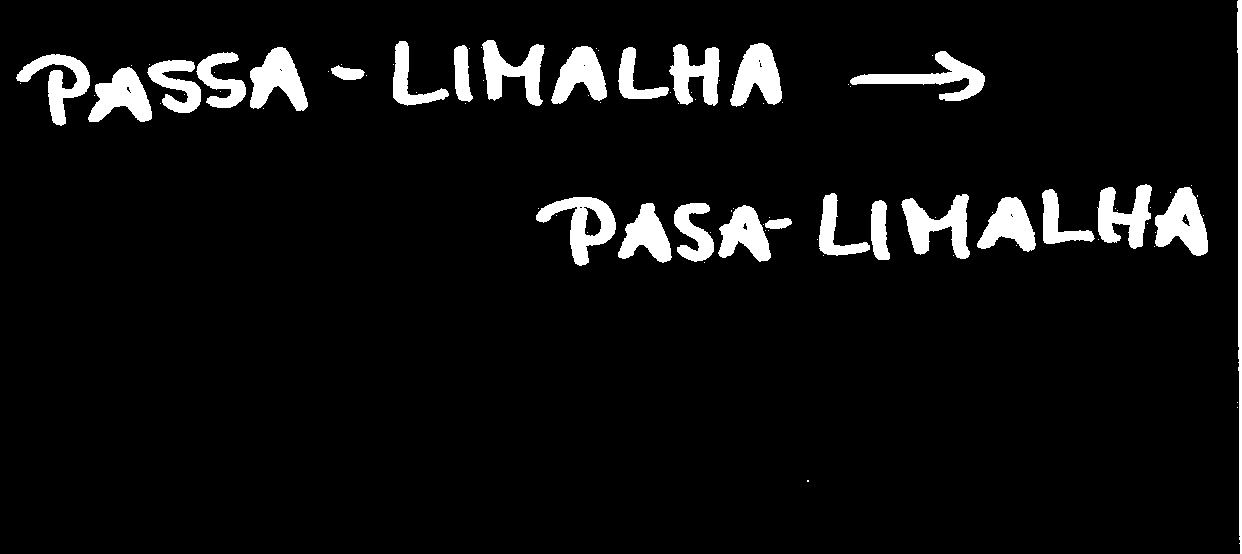 PASSA - LIMALHA →
PASA- LIMALHA